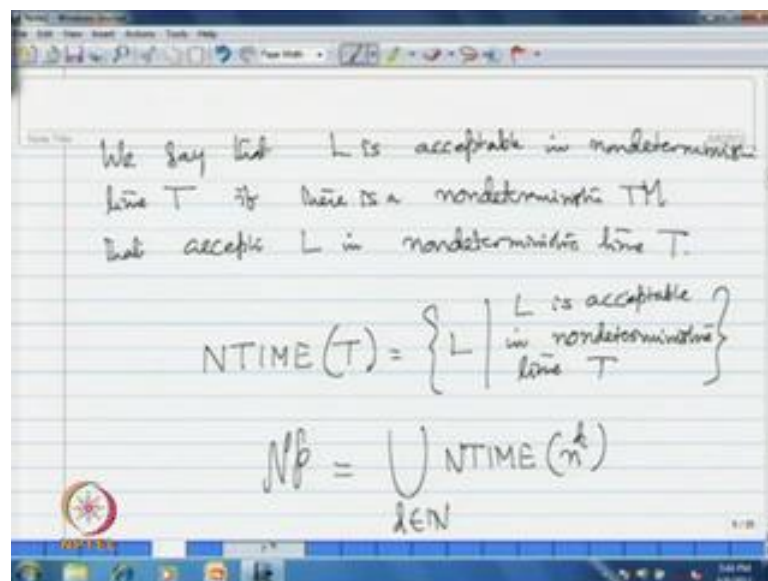 We say that L is acceptable in nondeterministic
time T if there is a nondeterministic TM
that accepts L in nondeterministic time T.
NTIME(T) = { L | L is acceptable
in nondeterministic
time T }
NP = ⋃ NTIME(n^k)
k∈N
NPTEL